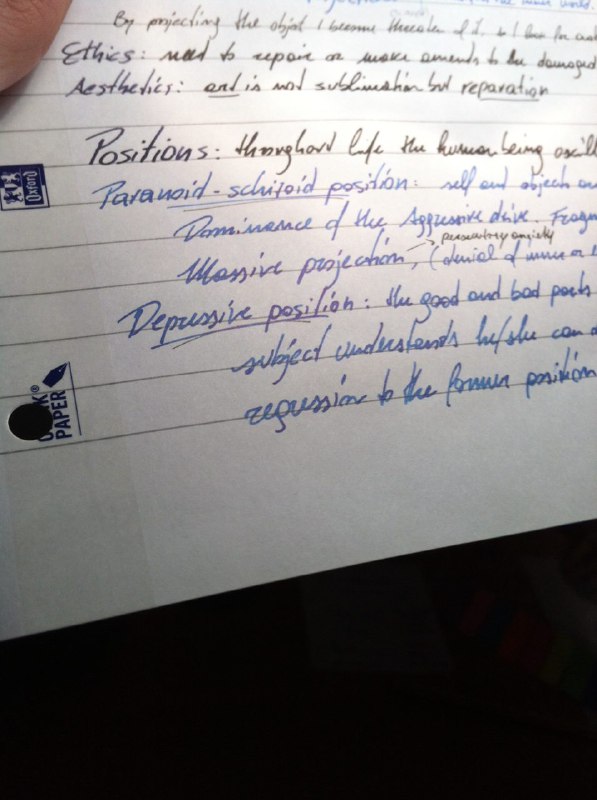 inner world.
By projecting the object I become threaten of it, so I
Ethics: need to repair or make amends to the damaged
Aesthetics: and is not sublimation but reparation
Positions: throughout life the human being oscill
Oxford
Paranoid-schizoid position: self and objects
Dominance of the Aggressive drive. Fragm
persecutory anxiety
Massive projection, (denial of inner or
Depressive position: the good and bad parts
subject understands he/she can
regression to the former position
K®
PAPER